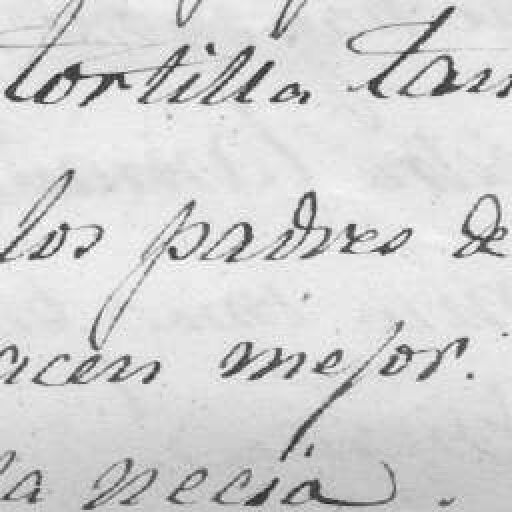 tortilla tam
los padres de
acen mejor.
la necia.